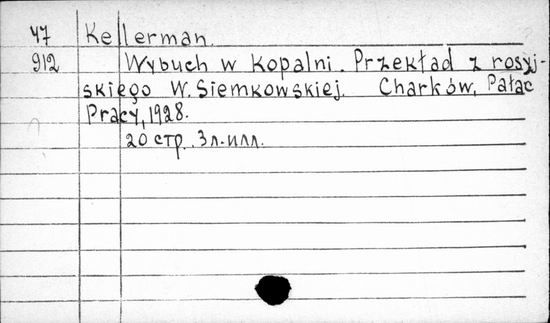 47 Kellerman.
912 Wybuch w kopalni. Przekład z rosyj-
skiego W. Siemkowskiej. Charków, Pałac
Pracy, 1928.
20 стр. 3 л. илл.